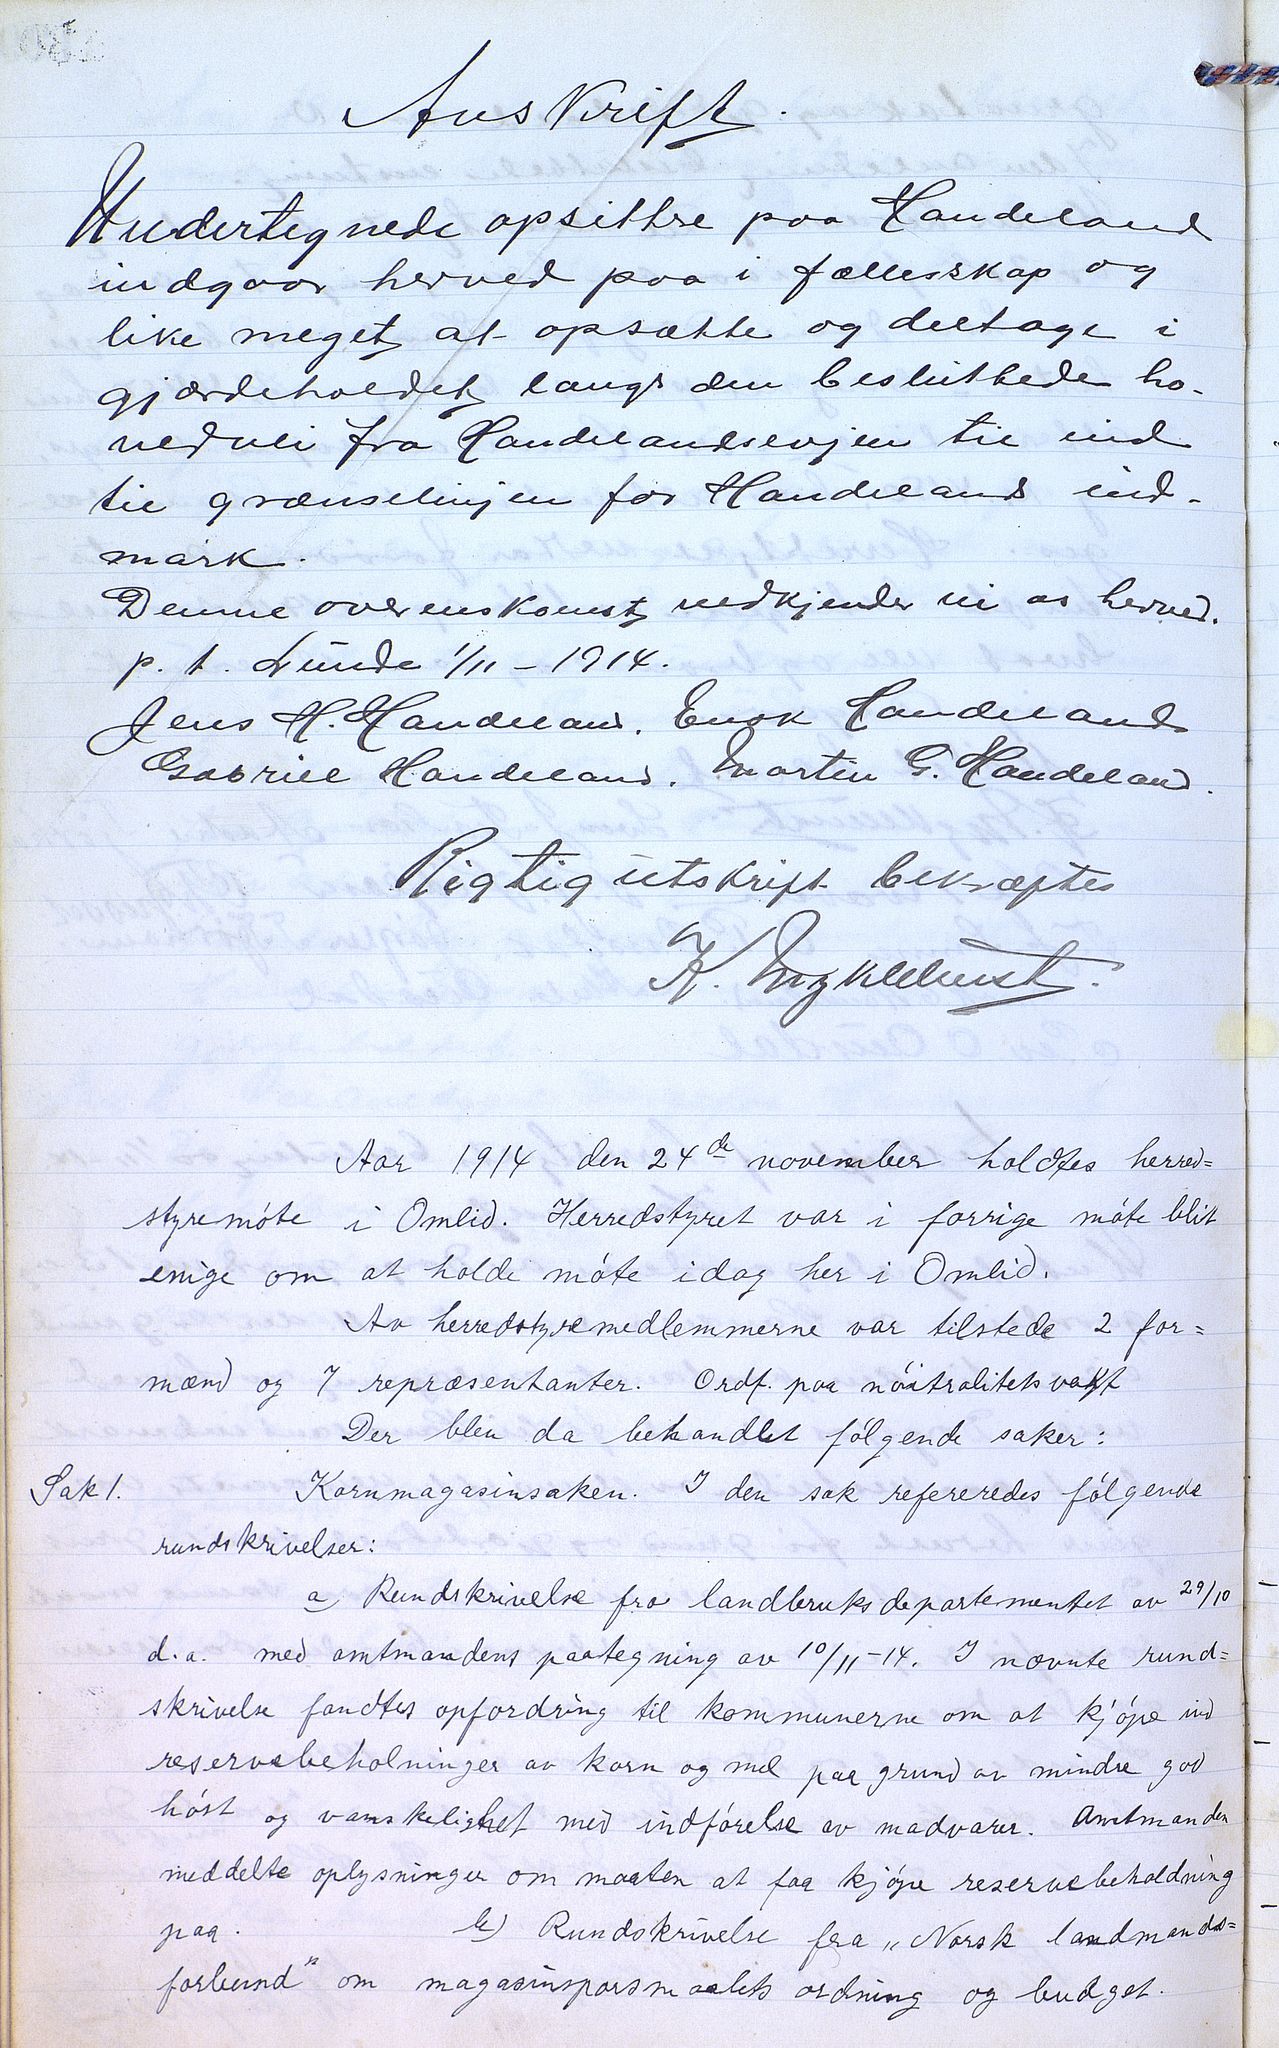 Avskrift.
Undertegnede opsittere paa Handeland
indgaar herved paa i fællesskap og
like meget at opsætte og deltage i
gjærdeholdet langs den besluttede ho-
vedvei fra Handelandsevjen til ind
til grænselinjen for Handelands ind-
mark.
Denne overenskomst vedkjender vi os herved.
p. t. Lunde 1/11 - 1914.
Jens H. Handeland. Enok Handeland
Gabriel Handeland. Martin G. Handeland.
Rigtig utskrift bekræftes
K.
Aar 1914 den 24de november holdtes herred=
styremóte i Omlid. Herredstyret var i forrige móte blit
enige om at holde móte idag her i Omlid.
Av herredstyremedlemmerne var tilstede 2 for=
mænd og 7 repræsentanter. Ordf. paa nóitralitetsvakt
Der blev da behandlet fólgende saker:
Sak 1. Kornmagasinsaken. I den sak refereredes fólgende
rundskrivelser:
a) Rundskrivelse fra landbruksdepartementet av 29/10
d.a. med amtmandens paategning av 10/11-14. I nævnte rund=
skrivelse fandtes opfordring til kommunerne om at kjópe ind
reservebeholninger av korn og mel paa grund av mindre god
hóst og vanskelighet med indfórelse av madvarer. Amtmanden
meddelte oplysninger om maaten at faa kjópe reservebeholdning
paa. b) Rundskrivelse fra „Norsk landmands=
forbund" om magasinspørsmaalets ordning og budget.